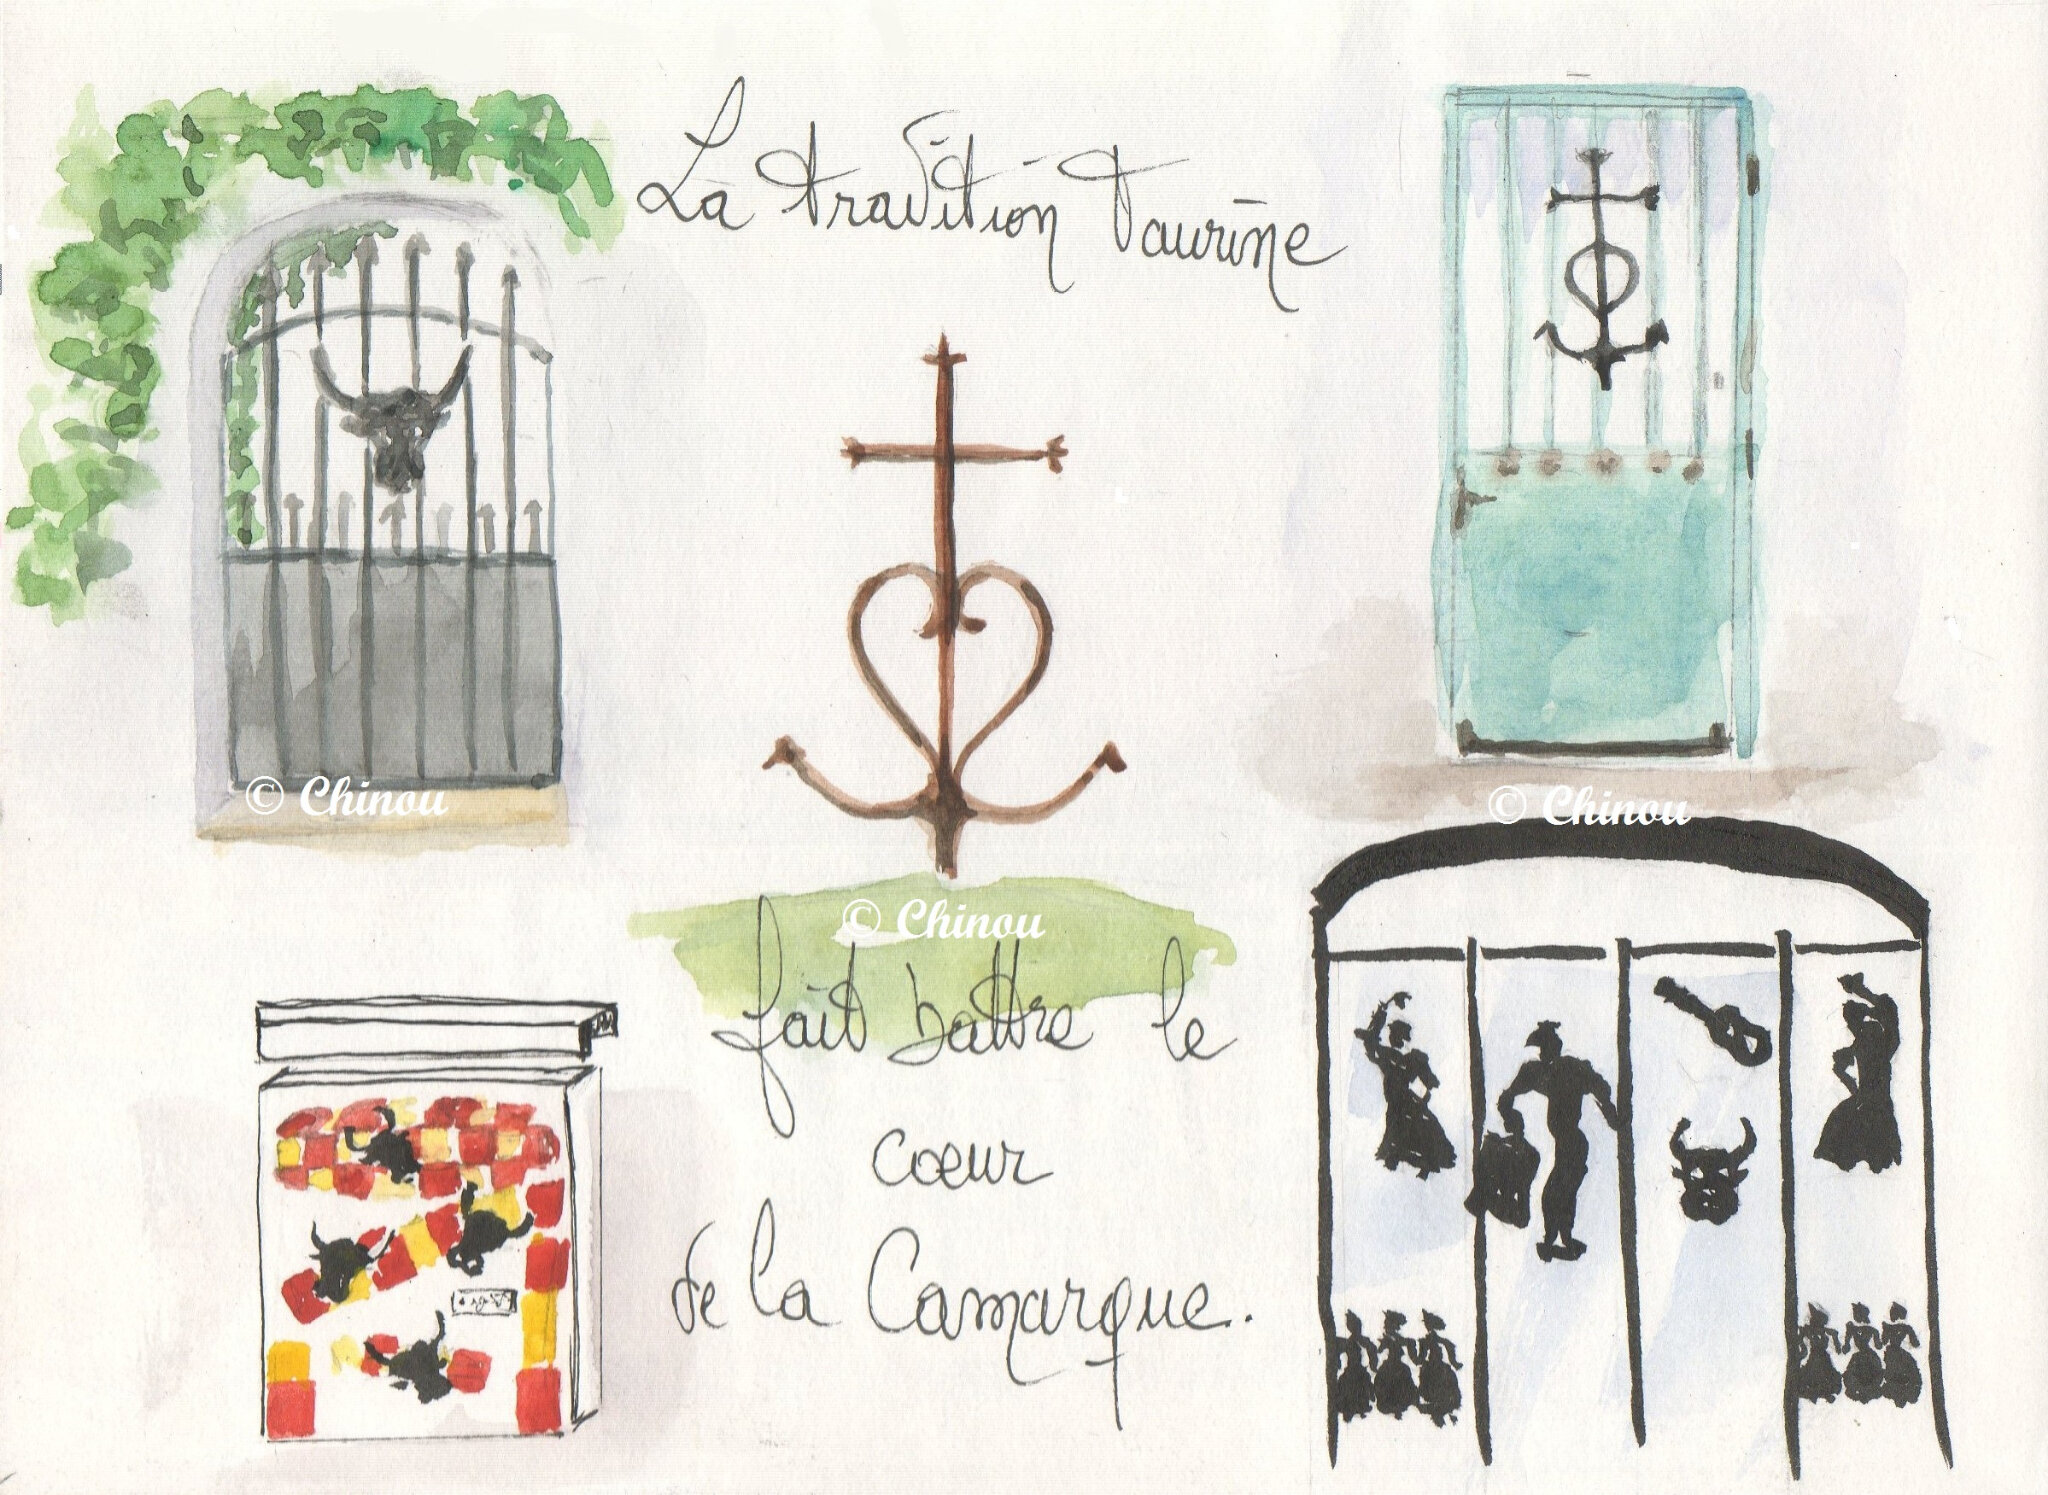 La tradition Taurine
© Chinou
© Chinou
© Chinou
fait battre le
cœur
de la Camargue.